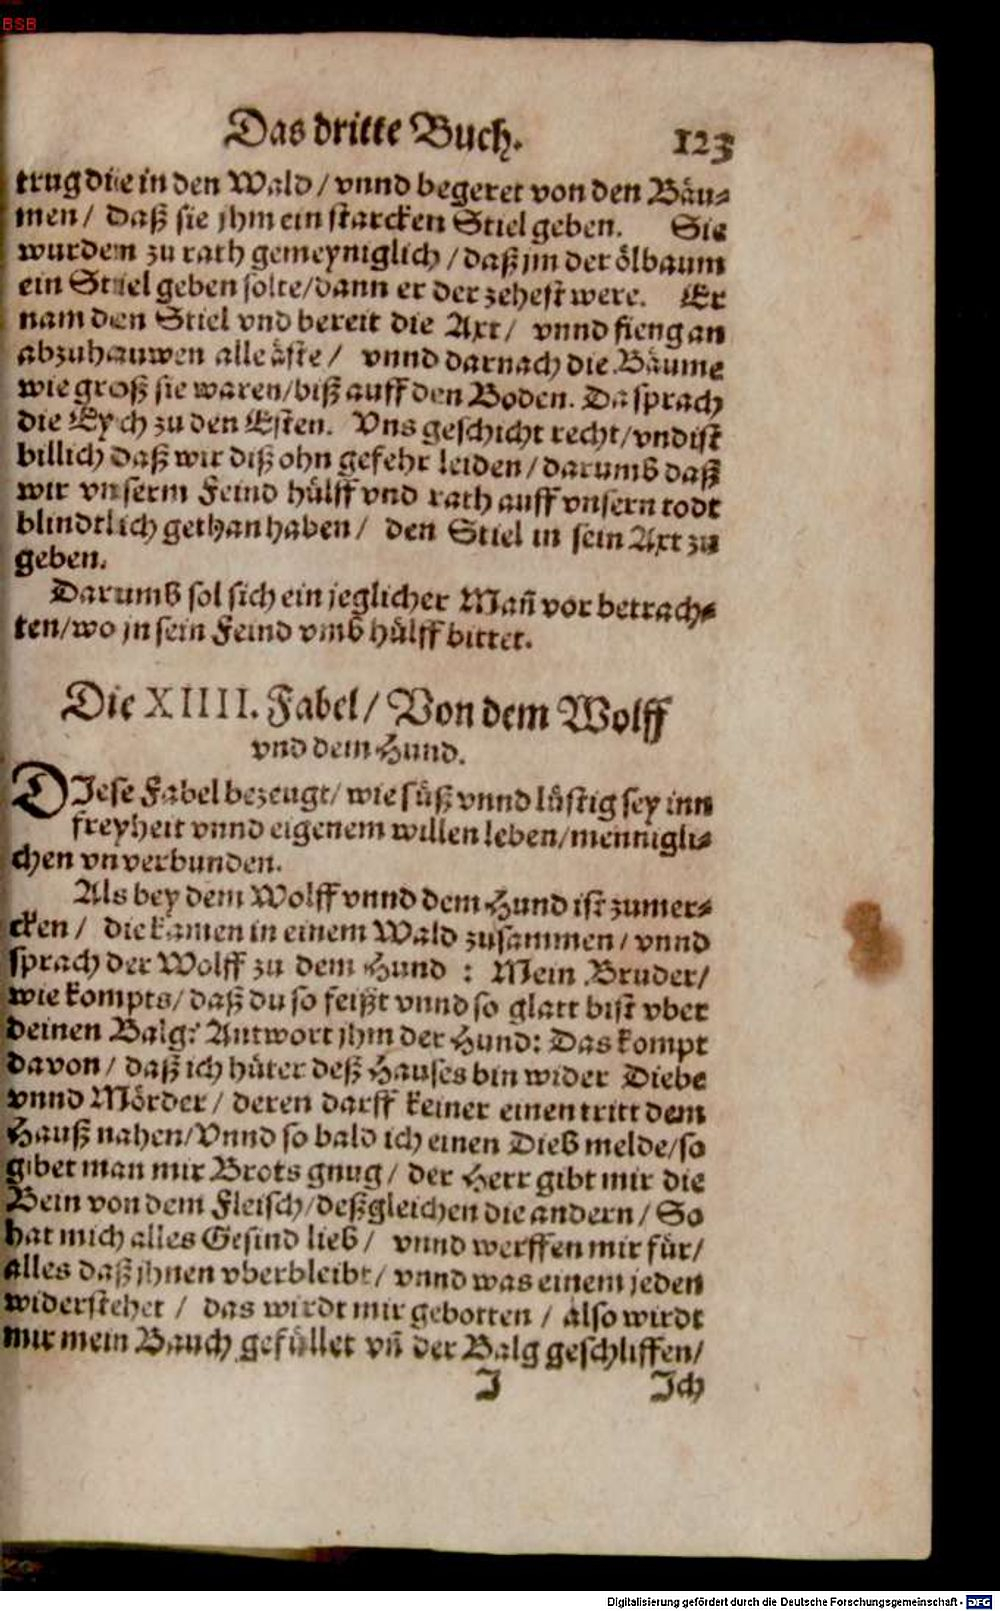 BSB
Das dritte Buch. 123
trug die in den Wald / vnnd begeret von den Bäu⸗
men / daß sie jhm ein starcken Stiel geben. Sie
wurden zu rath gemeyniglich / daß jm der ölbaum
ein Stiel geben solte / dann er der zehest were. Er
nam den Stiel vnd bereit die Axt / vnnd fieng an
abzuhauwen alle äste / vnnd darnach die Bäume
wie groß sie waren / biß auff den Boden. Da sprach
die Eych zu den Esten. Vns geschicht recht / vnd ist
billich daß wir diß ohn gefehr leiden / darumb daß
wir vnserm Feind hülff vnd rath auff vnsern todt
blindtlich gethan haben / den Stiel in sein Axt zu
geben.
Darumb sol sich ein jeglicher Man̄ vor betrach⸗
ten / wo jn sein Feind vmb hülff bittet.
Die XIIII. Fabel / Von dem Wolff
vnd dem Hund.
DIese Fabel bezeugt / wie süß vnnd lüstig sey inn
freyheit vnnd eigenem willen leben / mennigli⸗
chen vnverbunden.
Als bey dem Wolff vnnd dem Hund ist zumer⸗
cken / die kamen in einem Wald zusammen / vnnd
sprach der Wolff zu dem Hund : Mein Bruder /
wie kompts / daß du so feißt vnnd so glatt bist vber
deinen Balg? Antwort jhm der Hund: Das kompt
davon / daß ich hüter deß Hauses bin wider Diebe
vnnd Mörder / deren darff keiner einen tritt dem
Hauß nahen / Vnnd so bald ich einen Dieb melde / so
gibet man mir Brots gnug / der Herr gibt mir die
Bein von dem Fleisch / deßgleichen die andern / So
hat mich alles Gesind lieb / vnnd werffen mir für /
alles daß jhnen vberbleibt / vnnd was einem jeden
widerstehet / das wirdt mir gebotten / also wirdt
mir mein Bauch gefüllet vn̄ der Balg geschliffen /
J Ich
Digitalisierung gefördert durch die Deutsche Forschungsgemeinschaft - DFG